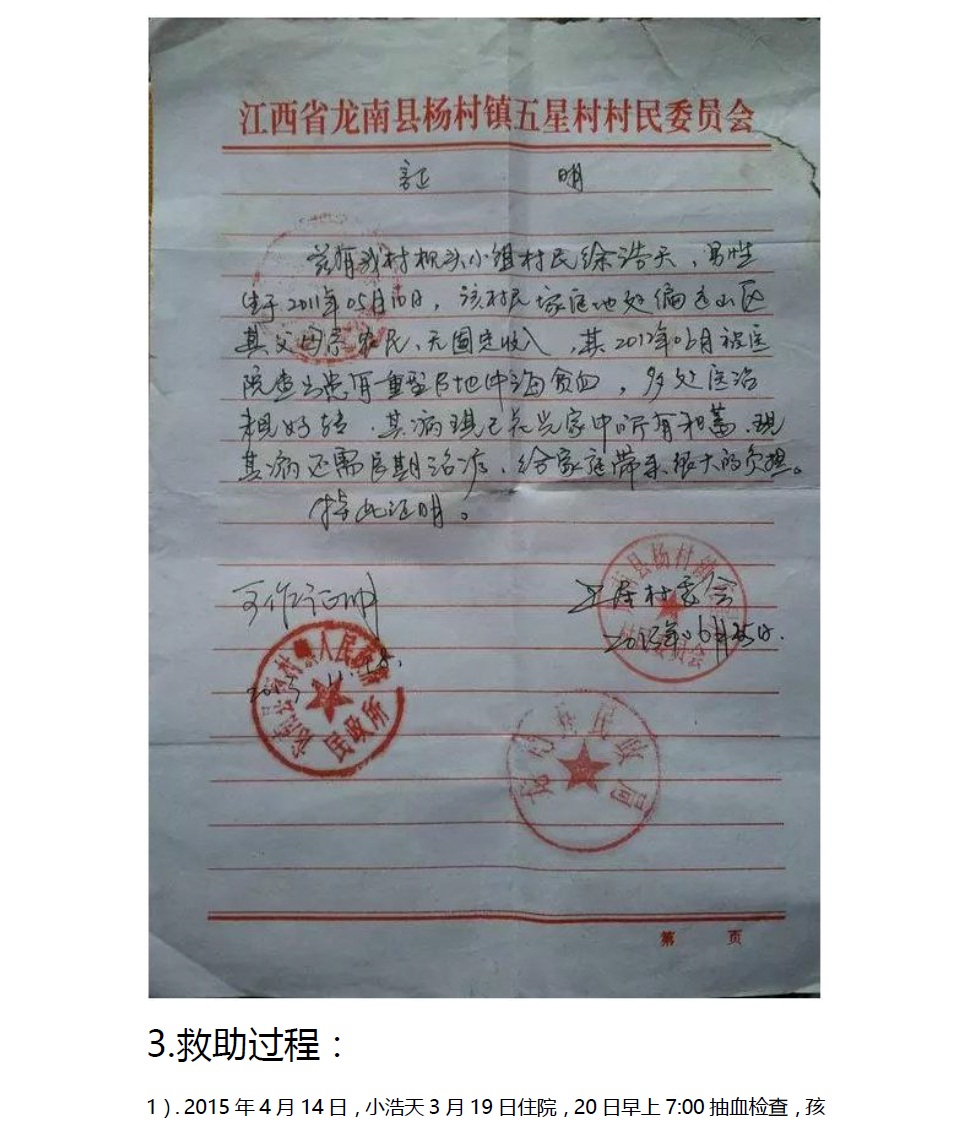 江西省龙南县杨村镇五星村村民委员会
证 明
兹有我村枧头小组村民徐浩天，男性
生于2011年05月10日，该村民家庭地处偏远山区
其父母系农民、无固定收入，其2012年06月被医
院查出患有重型B地中海贫血，多处医治
未见好转．其病现已花光家中所有积蓄、现
其病还需长期治疗，给家庭带来很大的负担。
特此证明。
五星村委会
2013年06月25日.
可作证明
龙南县杨村镇人民政府
民政所
龙南县民政局
第 页
3.救助过程：
1）. 2015 年 4 月 14 日，小浩天 3 月 19 日住院，20 日早上 7:00 抽血检查，孩